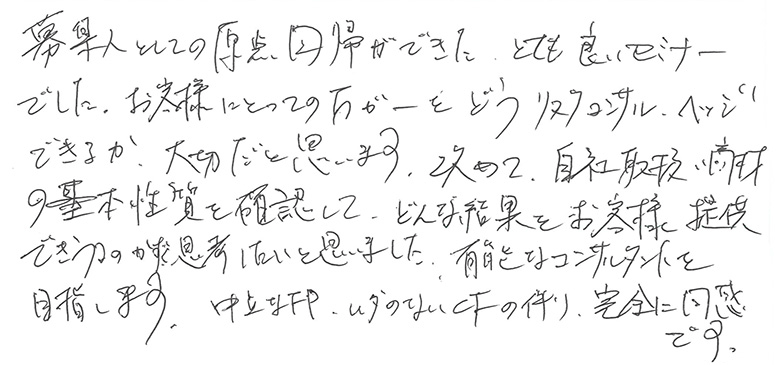 募集人としての原点回帰ができた、とても良いセミナー
でした。お客様にとっての万が一をどうリスクコンサル、ヘッジ
できるか、大切だと思います。改めて、自社取扱い商材
の基本性質を確認して、どんな結果をお客様に提供
できうるのか思考したいと思いました。有能なコンサルタントを
目指します。中立なFP、ムダのないCFの件り、完全に同感
です。